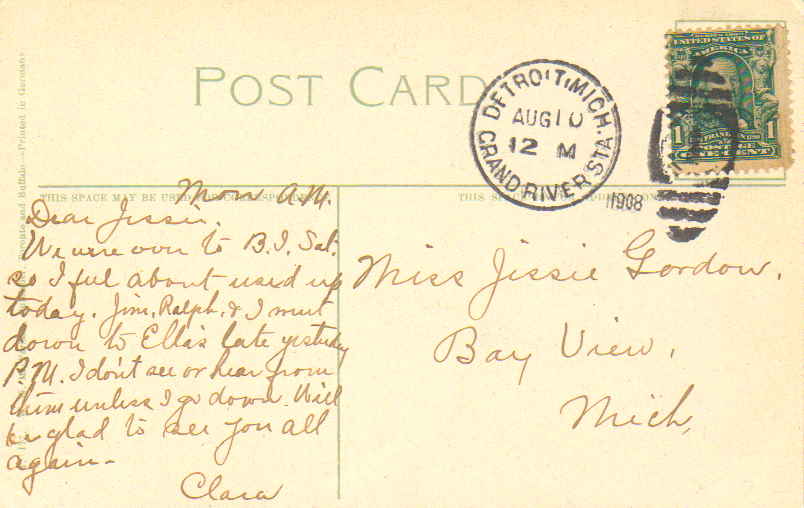 POST CARD
UNITED STATES OF AMERICA
1 1
FRANKLIN
POSTAGE
ONE CENT
DETROIT, MICH.
AUG 10
12 M
GRAND RIVER STA.
1908
THIS SPACE MAY BE USED FOR CORRESPONDENCE
THIS SPACE
Toronto and Buffalo.—Printed in Germany
Mon A.M.
Dear Jessie.
We were over to B.I. Sat.
so I feel about used up
today. Jim, Ralph, & I went
down to Ella's late yesterday
P.M. I don't see or hear from
them unless I go down. Will
be glad to see you all
again—
Clara
Miss Jissie Gordon.
Bay View,
Mich,